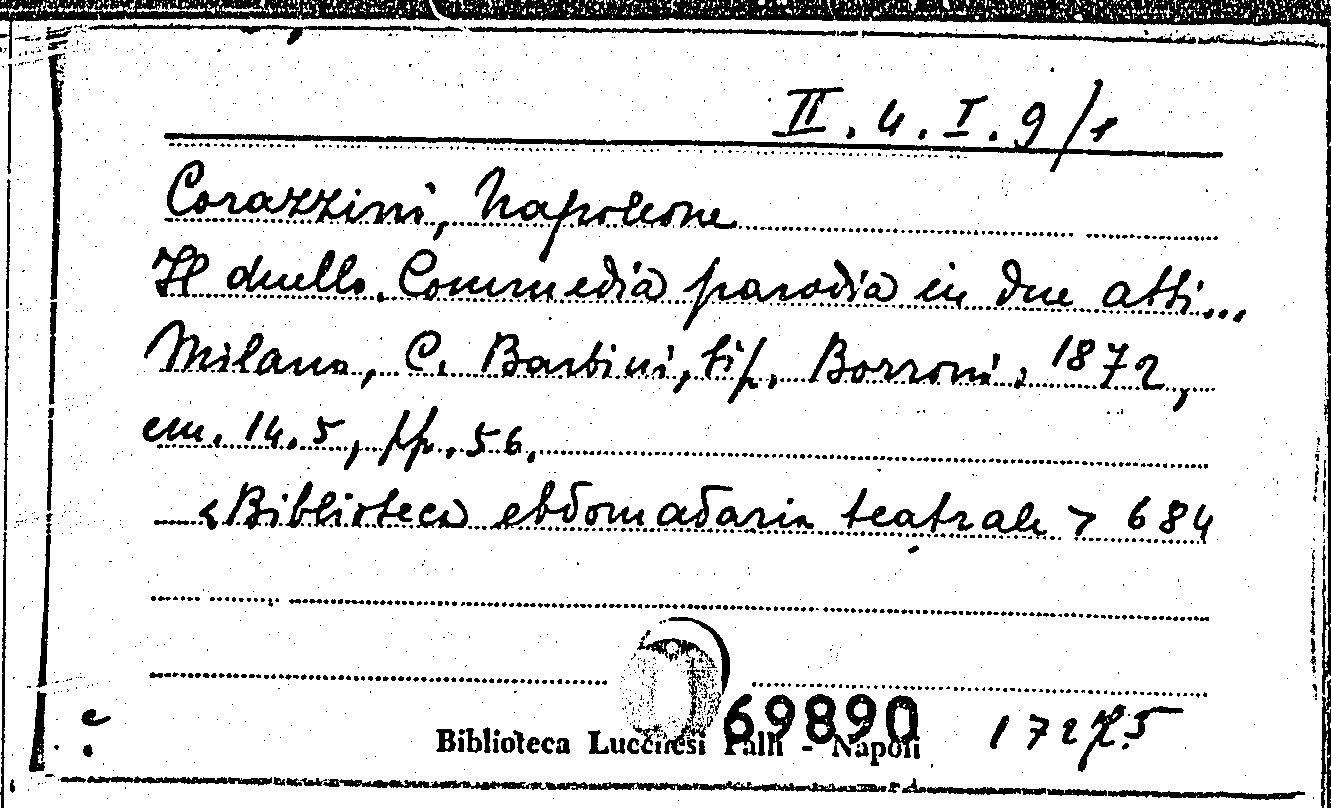 II. 4. I. 9/1
Corazzini, Napoleone
Il duello. Commedia parodia in due atti...
Milano, C. Barbini, tip. Borroni, 1872,
cm. 14.5, pp. 56.
«Biblioteca ebdomadaria teatrale» 684
69890
Biblioteca Lucchesi Palli - Napoli
c.